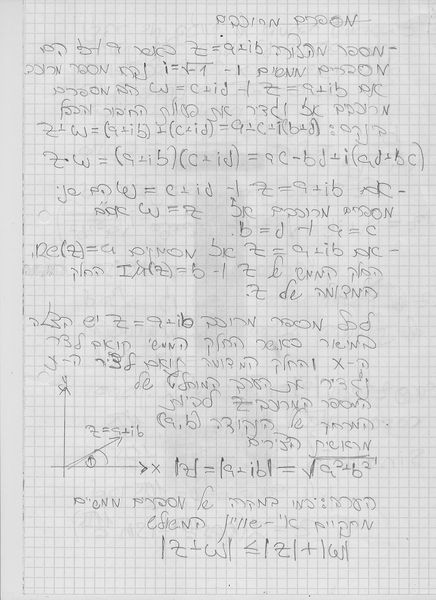 מספרים מרוכבים
-מספר מהצורה z=a+ib כאשר a ו-b הם
מספרים ממשים ו- i=√-1 נקרא מספר מרוכב
אם z=a+ib ו- w=c+id הם מספרים
מרוכבים אז נגדיר את פעולת החיבור והכפל
בינהם: z+w=(a+ib)+(c+id)=a+c+i(b+d)
z·w=(a+ib)(c+id)=ac-bd+i(ad+bc)
-אם z=a+ib ו- w=c+id הם שני
מספרים מרוכבים אז z=w אםם
a=c ו- b=d.
-אם z=a+ib אז מסמנים Re(z)=a,
החלק הממשי של z ו- Im(z)=b החלק
המדומה של z.
לכל מספר מרוכב z=a+ib יש הצגה
במישור כאשר החלק הממשי קואם לציר
ה-x והחלק המדומה קואם לציר ה-y
נגדיר את הערך המוחלט של
המספר המרוכב z להיות
המרחק של הנקודה (a,b)
מראשית הצירים
y
z=a+ib
x
|z|=|a+ib|=√a²+b²
הערה: כמו במקרה של מספרים ממשים
מתקיים אי-שוויון המשולש
|z+w|≤|z|+|w|